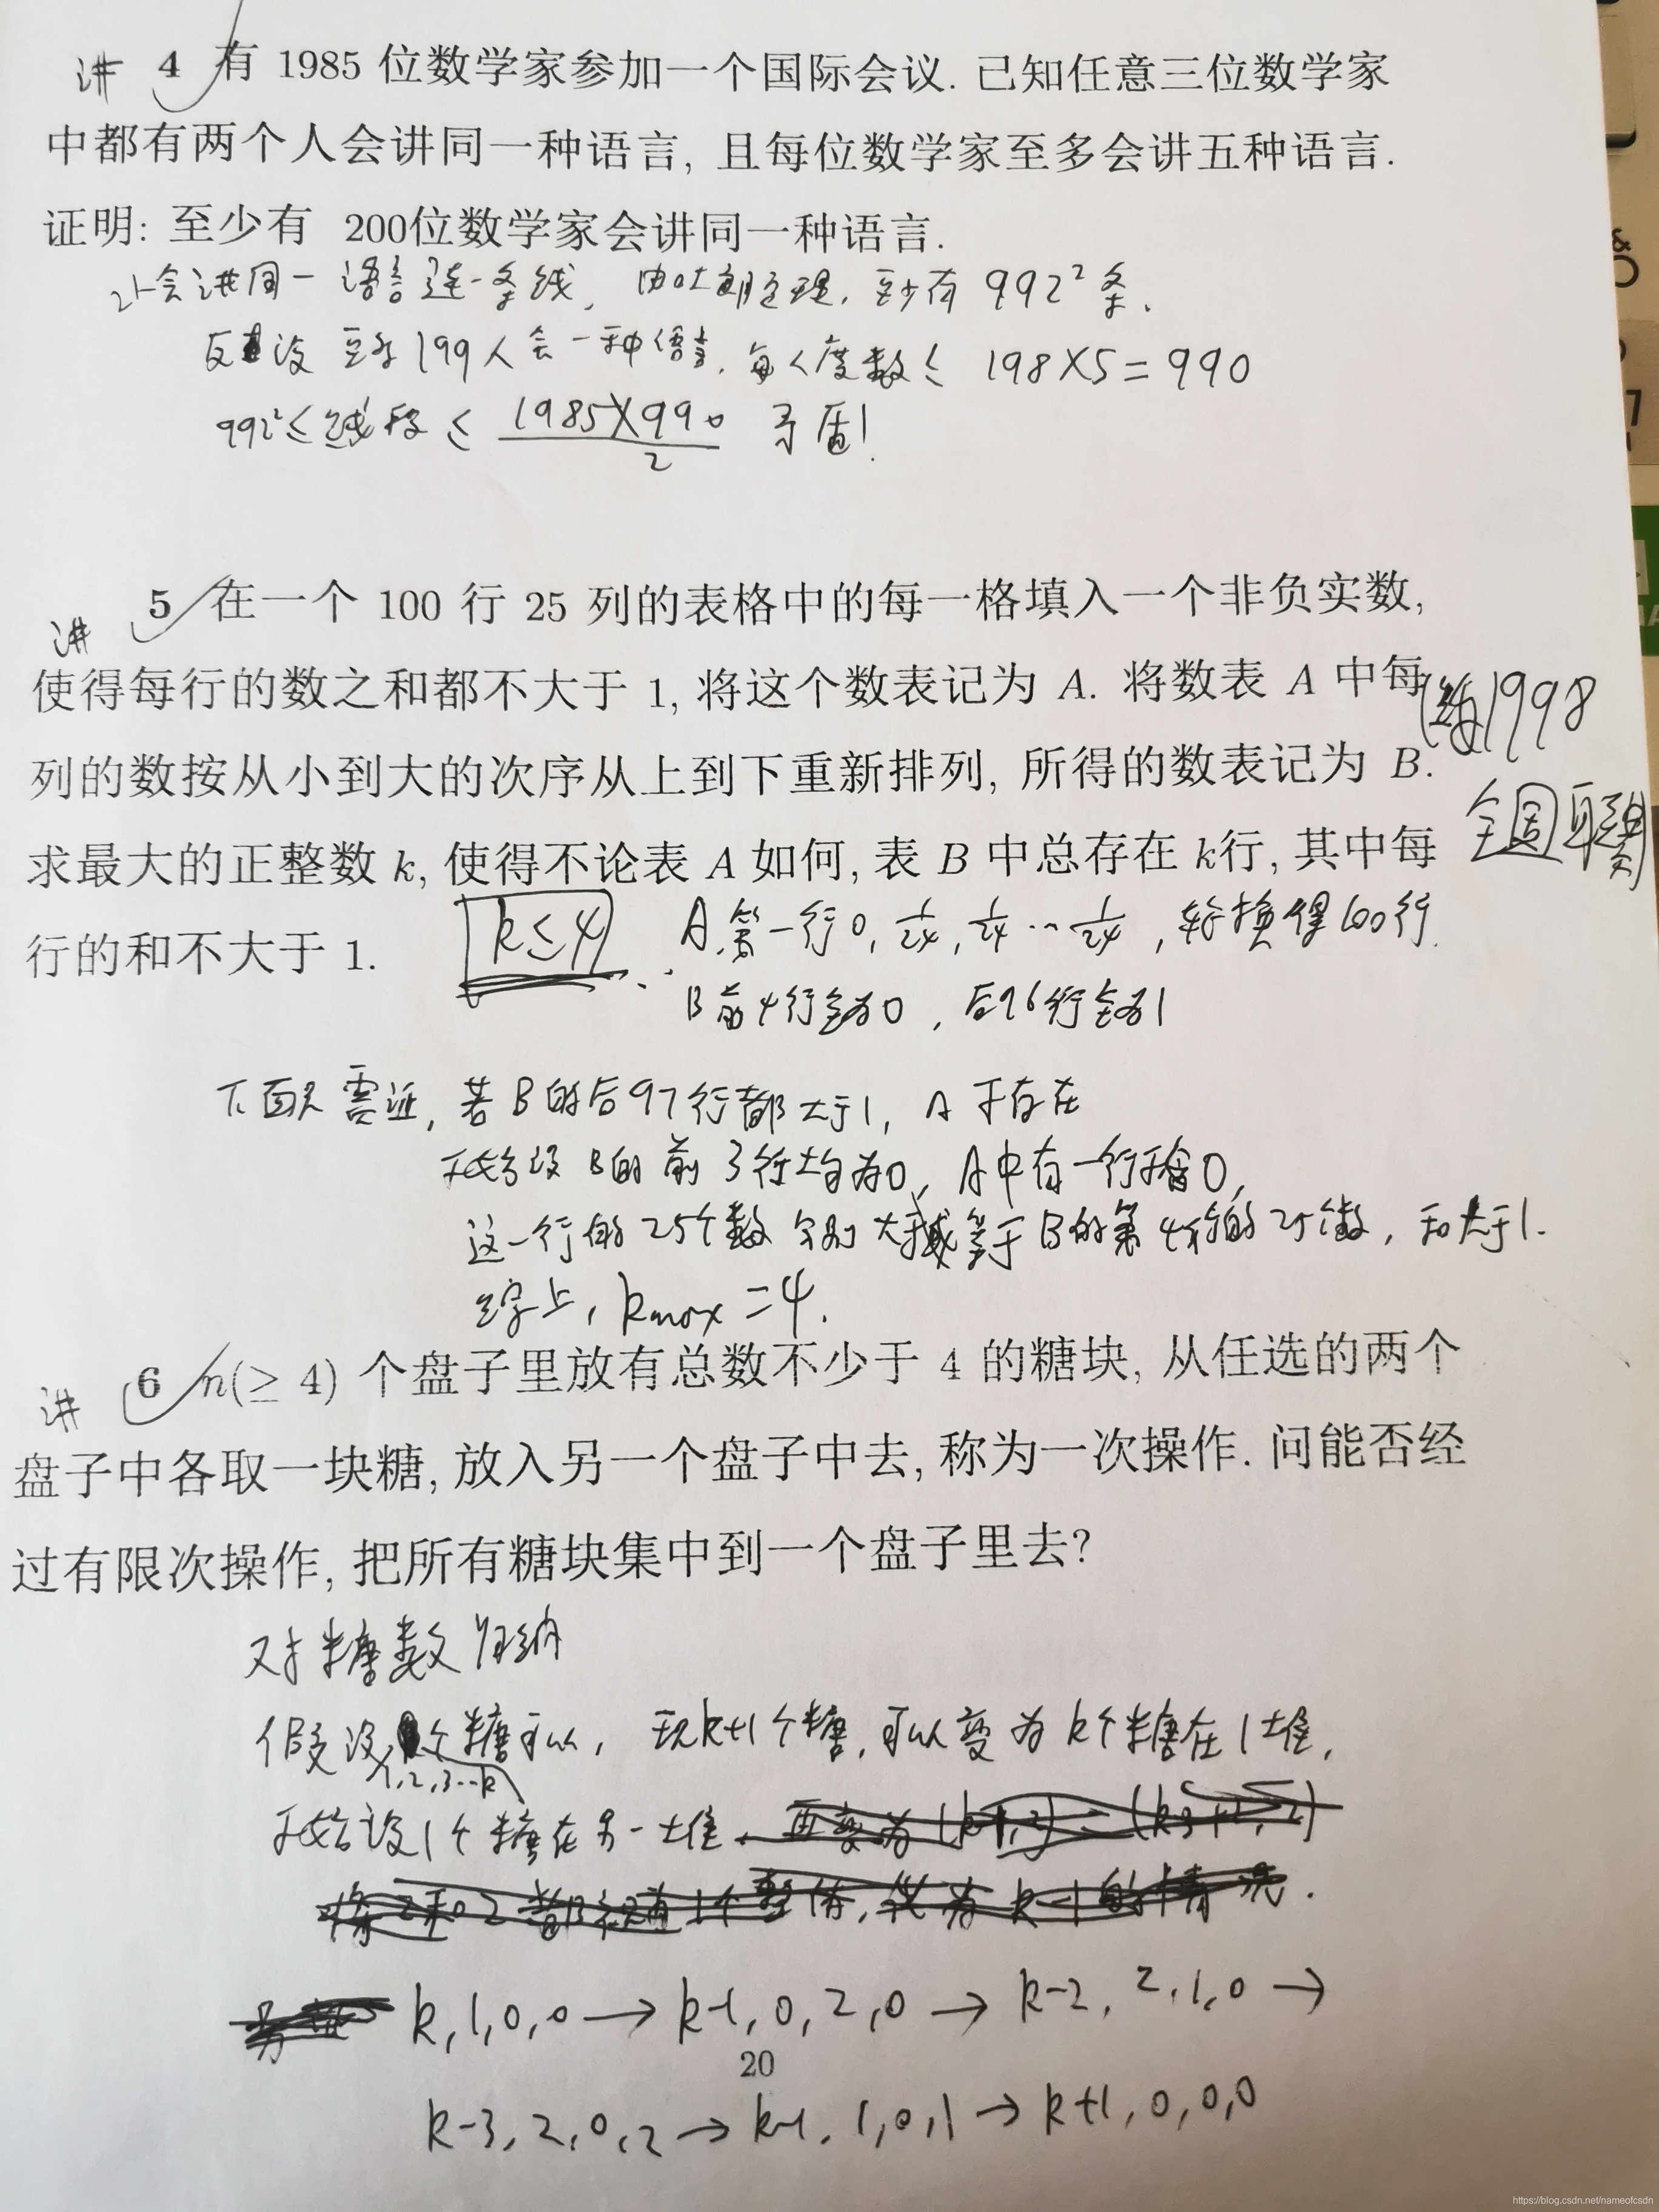 讲 4 有 1985 位数学家参加一个国际会议. 已知任意三位数学家
中都有两个人会讲同一种语言, 且每位数学家至多会讲五种语言.
证明: 至少有 200位数学家会讲同一种语言.
2人会讲同一语言连一条线, 由 定理, 至少有 992² 条.
反设 至多199人会一种语言, 每人度数≤ 198×5=990
992²≤线段≤ 1985×990/2 矛盾!
讲 5 在一个 100 行 25 列的表格中的每一格填入一个非负实数,
使得每行的数之和都不大于 1, 将这个数表记为 A. 将数表 A 中每
列的数按从小到大的次序从上到下重新排列, 所得的数表记为 B.
求最大的正整数 k, 使得不论表 A 如何, 表 B 中总存在 k行, 其中每
行的和不大于 1.
1998
全国联赛
k≤4 A第一行0, 1/24, 1/24 … 1/24, 轮换得100行.
B前4行全为0, 后96行全为
下面只需证, 若B的后97行都大于1, A不存在
不妨设 B的前3行均为0, A中有一行不含0,
这一行的25个数分别大于或等于B的第4行的25个数, 和大于1.
综上, kmax=4.
讲 6 n(≥ 4) 个盘子里放有总数不少于 4 的糖块, 从任选的两个
盘子中各取一块糖, 放入另一个盘子中去, 称为一次操作. 问能否经
过有限次操作, 把所有糖块集中到一个盘子里去?
对糖数归纳
假设 个糖可以, 现k+1个糖, 可以变为k个糖在1堆,
1,2,3…k
不妨设1个糖在另一堆.
k,1,0,0 → k-1,0,2,0 → k-2,2,1,0 →
20
k-3,2,0,2 → k-1,1,0,1 → k+1,0,0,0
https://blog.csdn.net/nameofcsdn